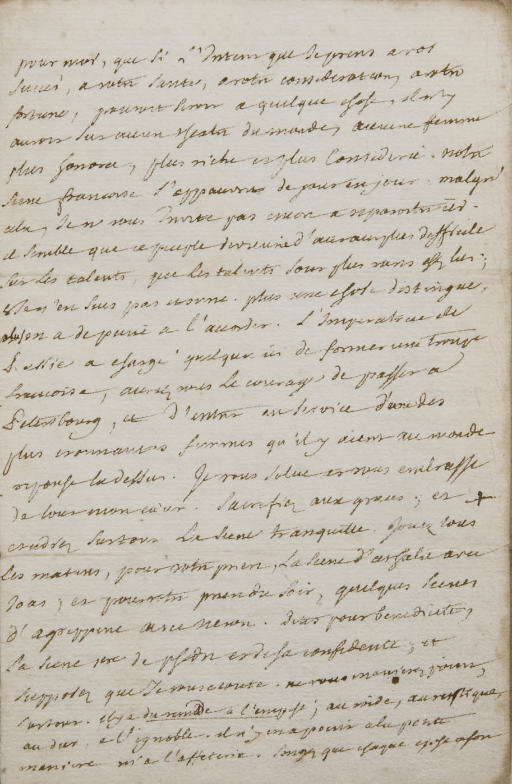 pour moi, que si l'interet que je prens a vos
succès, a votre sante, a votre consideration, a votre
fortune, pouvoit servir a quelque chose, il n'y
auroit sur aucun theatre du monde, aucune femme
plus honorée, plus riche et plus considerée. notre
scene francoise s'appauvrit de jour en jour. malgré
cela, je ne vous invite pas encor a reparoitre ici.
il semble que ce peuple devienne d'autant plus difficile
sur les talents, que les talents sont plus rares chez lui;
je n'en suis pas etonné. plus une chose distingue,
plus on a de peine a l'accorder. L'Imperatrice de
Russie a chargé quelqu'un ici de former une troupe
francoise, auriez vous le courage de passer a
Petersbourg, et d'entrer au service d'une des
plus etonnantes femmes qu'il y aient au monde
reponse la dessus. Je vous salue et vous embrasse
de tout mon cœur. Sacrifiez aux graces; et +
etudiez surtout la scene tranquille. Jouez tous
les matins, pour votre priere, la scene d'athalie avec
Joas; et pour votre priere du soir, quelques scenes
d'agrippine avec neron. Dites pour benedicite,
la scene 1ere de phedre et de sa confidente; et
supposez que je vous ecoute. ne vous manierez point,
surtout. il y a du remede a l'empesé; au roide, au rustique,
au dur, a l'ignoble. il n'y en a point a la petite
maniere ni a l'affeterie. Songez que chaque chose a son